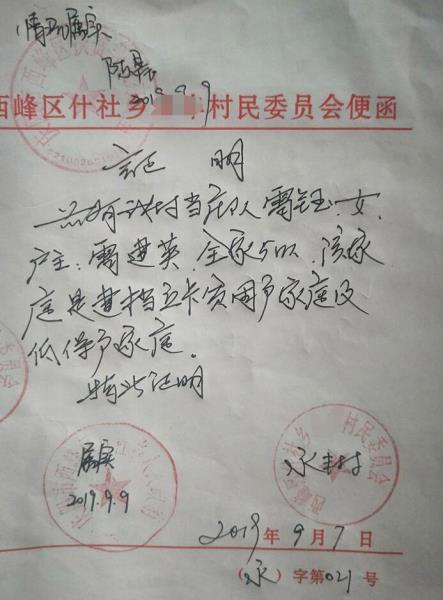 情况属实
2019.9.9
西峰区什社乡 村民委员会便函
证 明
兹有我村当庄队雷钰,女,
户主:雷进英,全家5口,该家
庭是建档立卡贫困户家庭及
低保户家庭。
特此证明
属实
2019.9.9
西峰区什社乡 村民委员会
永丰村
2019年9月7日
(永)字第021号